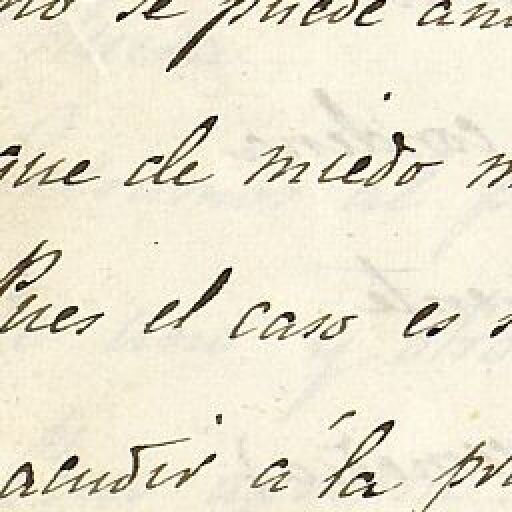 no se puede an
que de miedo m
Pues el caso es s
acudir á la pr